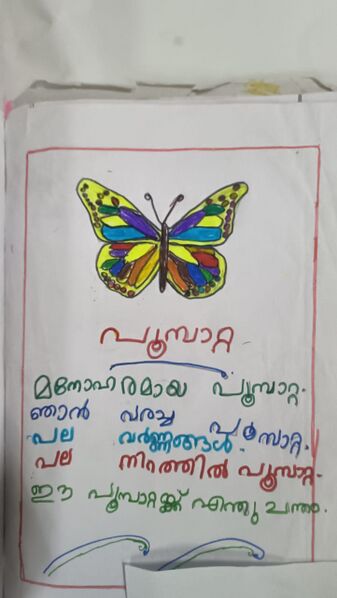 പൂമ്പാറ്റ
മനോഹരമായ പൂമ്പാറ്റ.
ഞാൻ വരച്ച പൂമ്പാറ്റ.
പല വർണ്ണങ്ങൾ.
പല നിറത്തിൽ പൂമ്പാറ്റ.
ഈ പൂമ്പാറ്റക്ക് എന്തു ചന്തം.